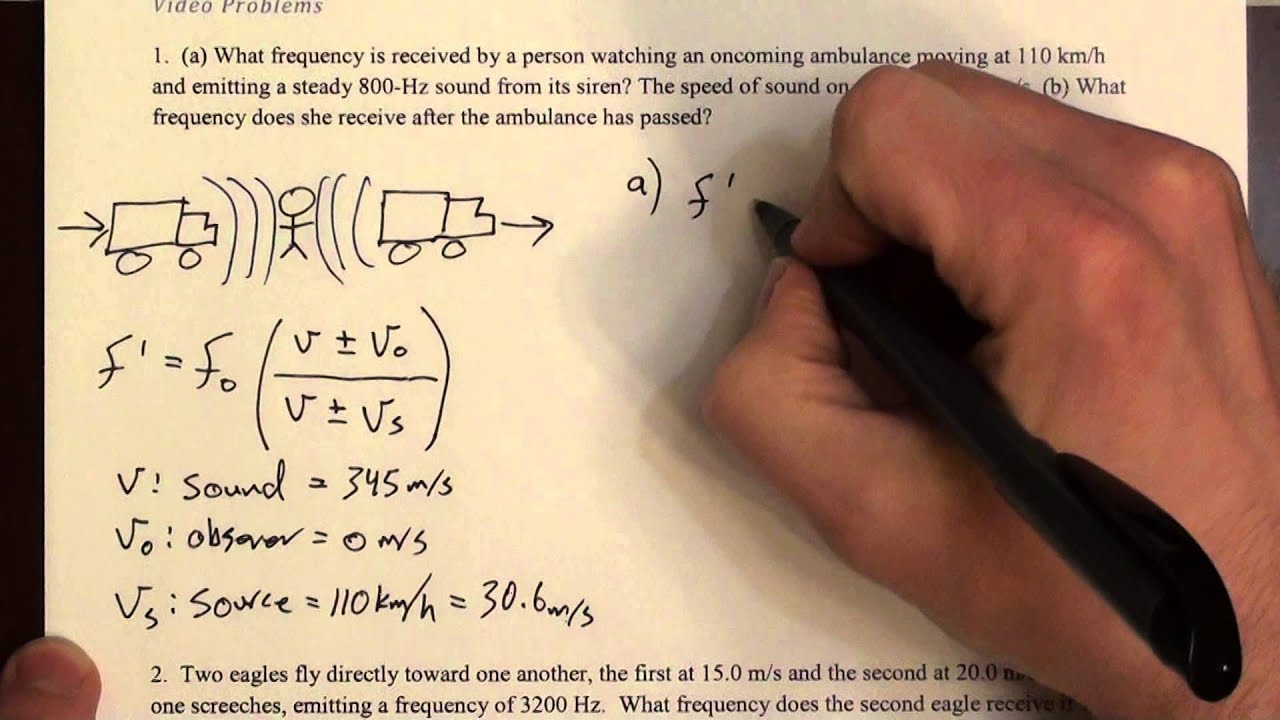 Video Problems
1. (a) What frequency is received by a person watching an oncoming ambulance moving at 110 km/h
and emitting a steady 800-Hz sound from its siren? The speed of sound on (b) What
frequency does she receive after the ambulance has passed?
a) f'
f' = f₀ (v ± v₀ / v ± vₛ)
v: sound = 345 m/s
v₀: observer = 0 m/s
vₛ: source = 110 km/h = 30.6 m/s
2. Two eagles fly directly toward one another, the first at 15.0 m/s and the second at 20.0
one screeches, emitting a frequency of 3200 Hz. What frequency does the second eagle receive